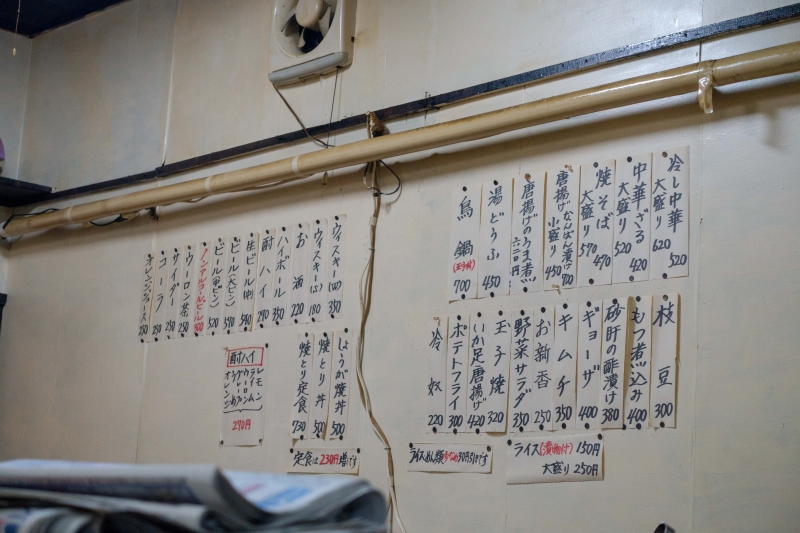 冷し中華 520
大盛り 620
中華ざる 420
大盛り 520
焼そば 470
大盛り 570
唐揚げなんばん漬け 700
小盛り 450
唐揚げのうま煮
六二〇円
湯どうふ 450
鳥鍋(玉子付) 700
枝豆 300
もつ煮込み 400
砂肝の酢漬け 380
ギョーザ 400
キムチ 350
お新香 250
野菜サラダ 350
玉子焼 320
いか足唐揚げ 420
ポテトフライ 300
冷奴 220
ライス(漬物付) 150円
大盛り 250円
ライスめん類少なめ30円引きです
ウィスキー(W) 350
ウィスキー(S) 180
お酒 220
ハイボール 350
酎ハイ 290
生ビール(中)
ビール大ビン 590
ビール中ビン 520
ノンアルコールビール
ウーロン茶 250
サイダー 250
コーラ 250
オレンジジュース 250
しょうが焼丼 500
焼とり丼 500
焼とり定食 730
定食は230円増です
酎ハイ
レモン
ライム
ウーロン
グレープ
うめ
オレンジ
290円